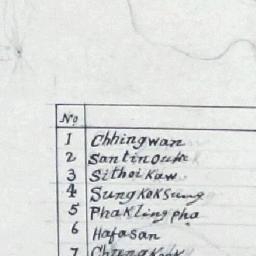 No
1 Chhingwan
2 Santinouk
3 Sithoikaw
4 Sungkoksung
5 Phaklingpha
6 Hafasan
7